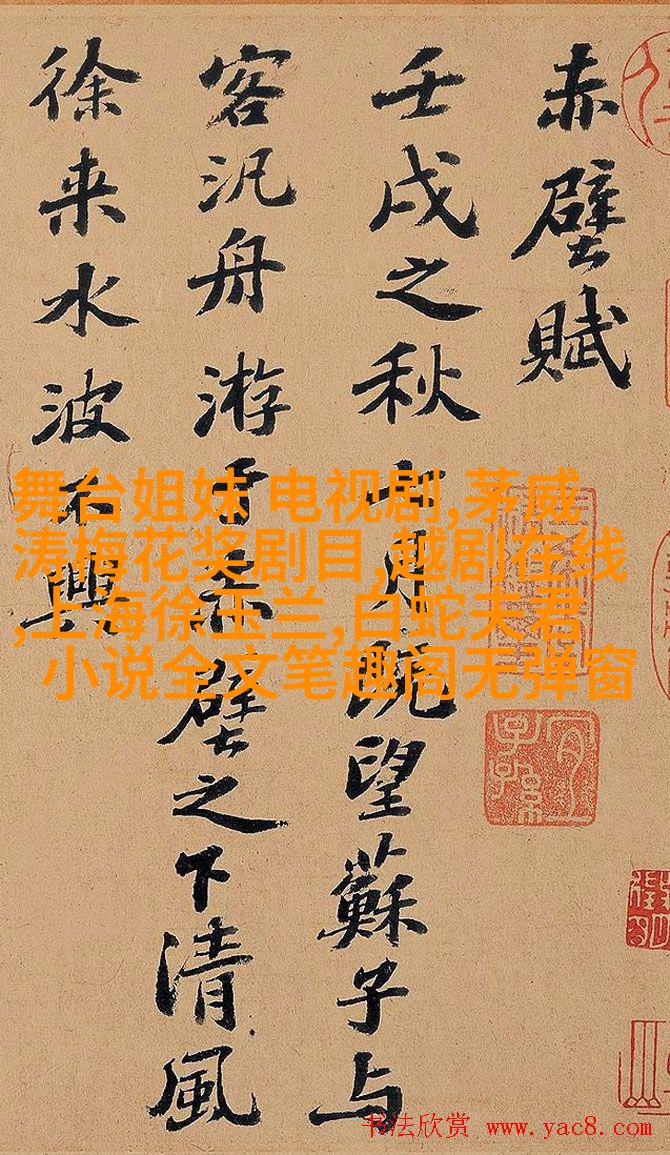 赤壁賦
壬戌之秋七月既望蘇子与
客汎舟游于赤壁之下清風
徐来水波不興
舞台姐妹 电视剧,茅威
涛梅花奖剧目,越剧在线
,上海徐玉兰,白蛇夫君
小说全文笔趣阁无弹窗
书法欣赏 www.yac8.com